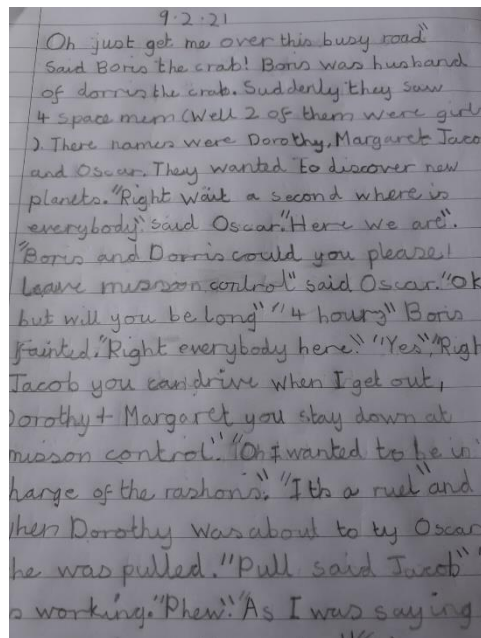 9.2.21
Oh just get me over this busy road"
Said Boris the crab! Boris was husband
of dorris the crab. Suddenly they saw
4 space mem (Well 2 of them were girl
). There names were Dorothy, Margaret Jaco
and Oscar. They wanted to discover new
planets. "Right wait a second where is
everybody" said Oscar. "Here we are".
"Boris and Dorris could you please!
Leave mission control" said Oscar. "Ok
but will you be long" "4 hours" Boris
fainted. "Right everybody here." "Yes", "Righ
Jacob you can drive when I get out,
Dorothy + Margaret you stay down at
misson control." "Oh I wanted to be in
harge of the rashons". "Its a ruel" and
hen Dorothy was about to ty Oscar
he was pulled. "Pull said Jacob"
s working. "Phew". "As I was saying